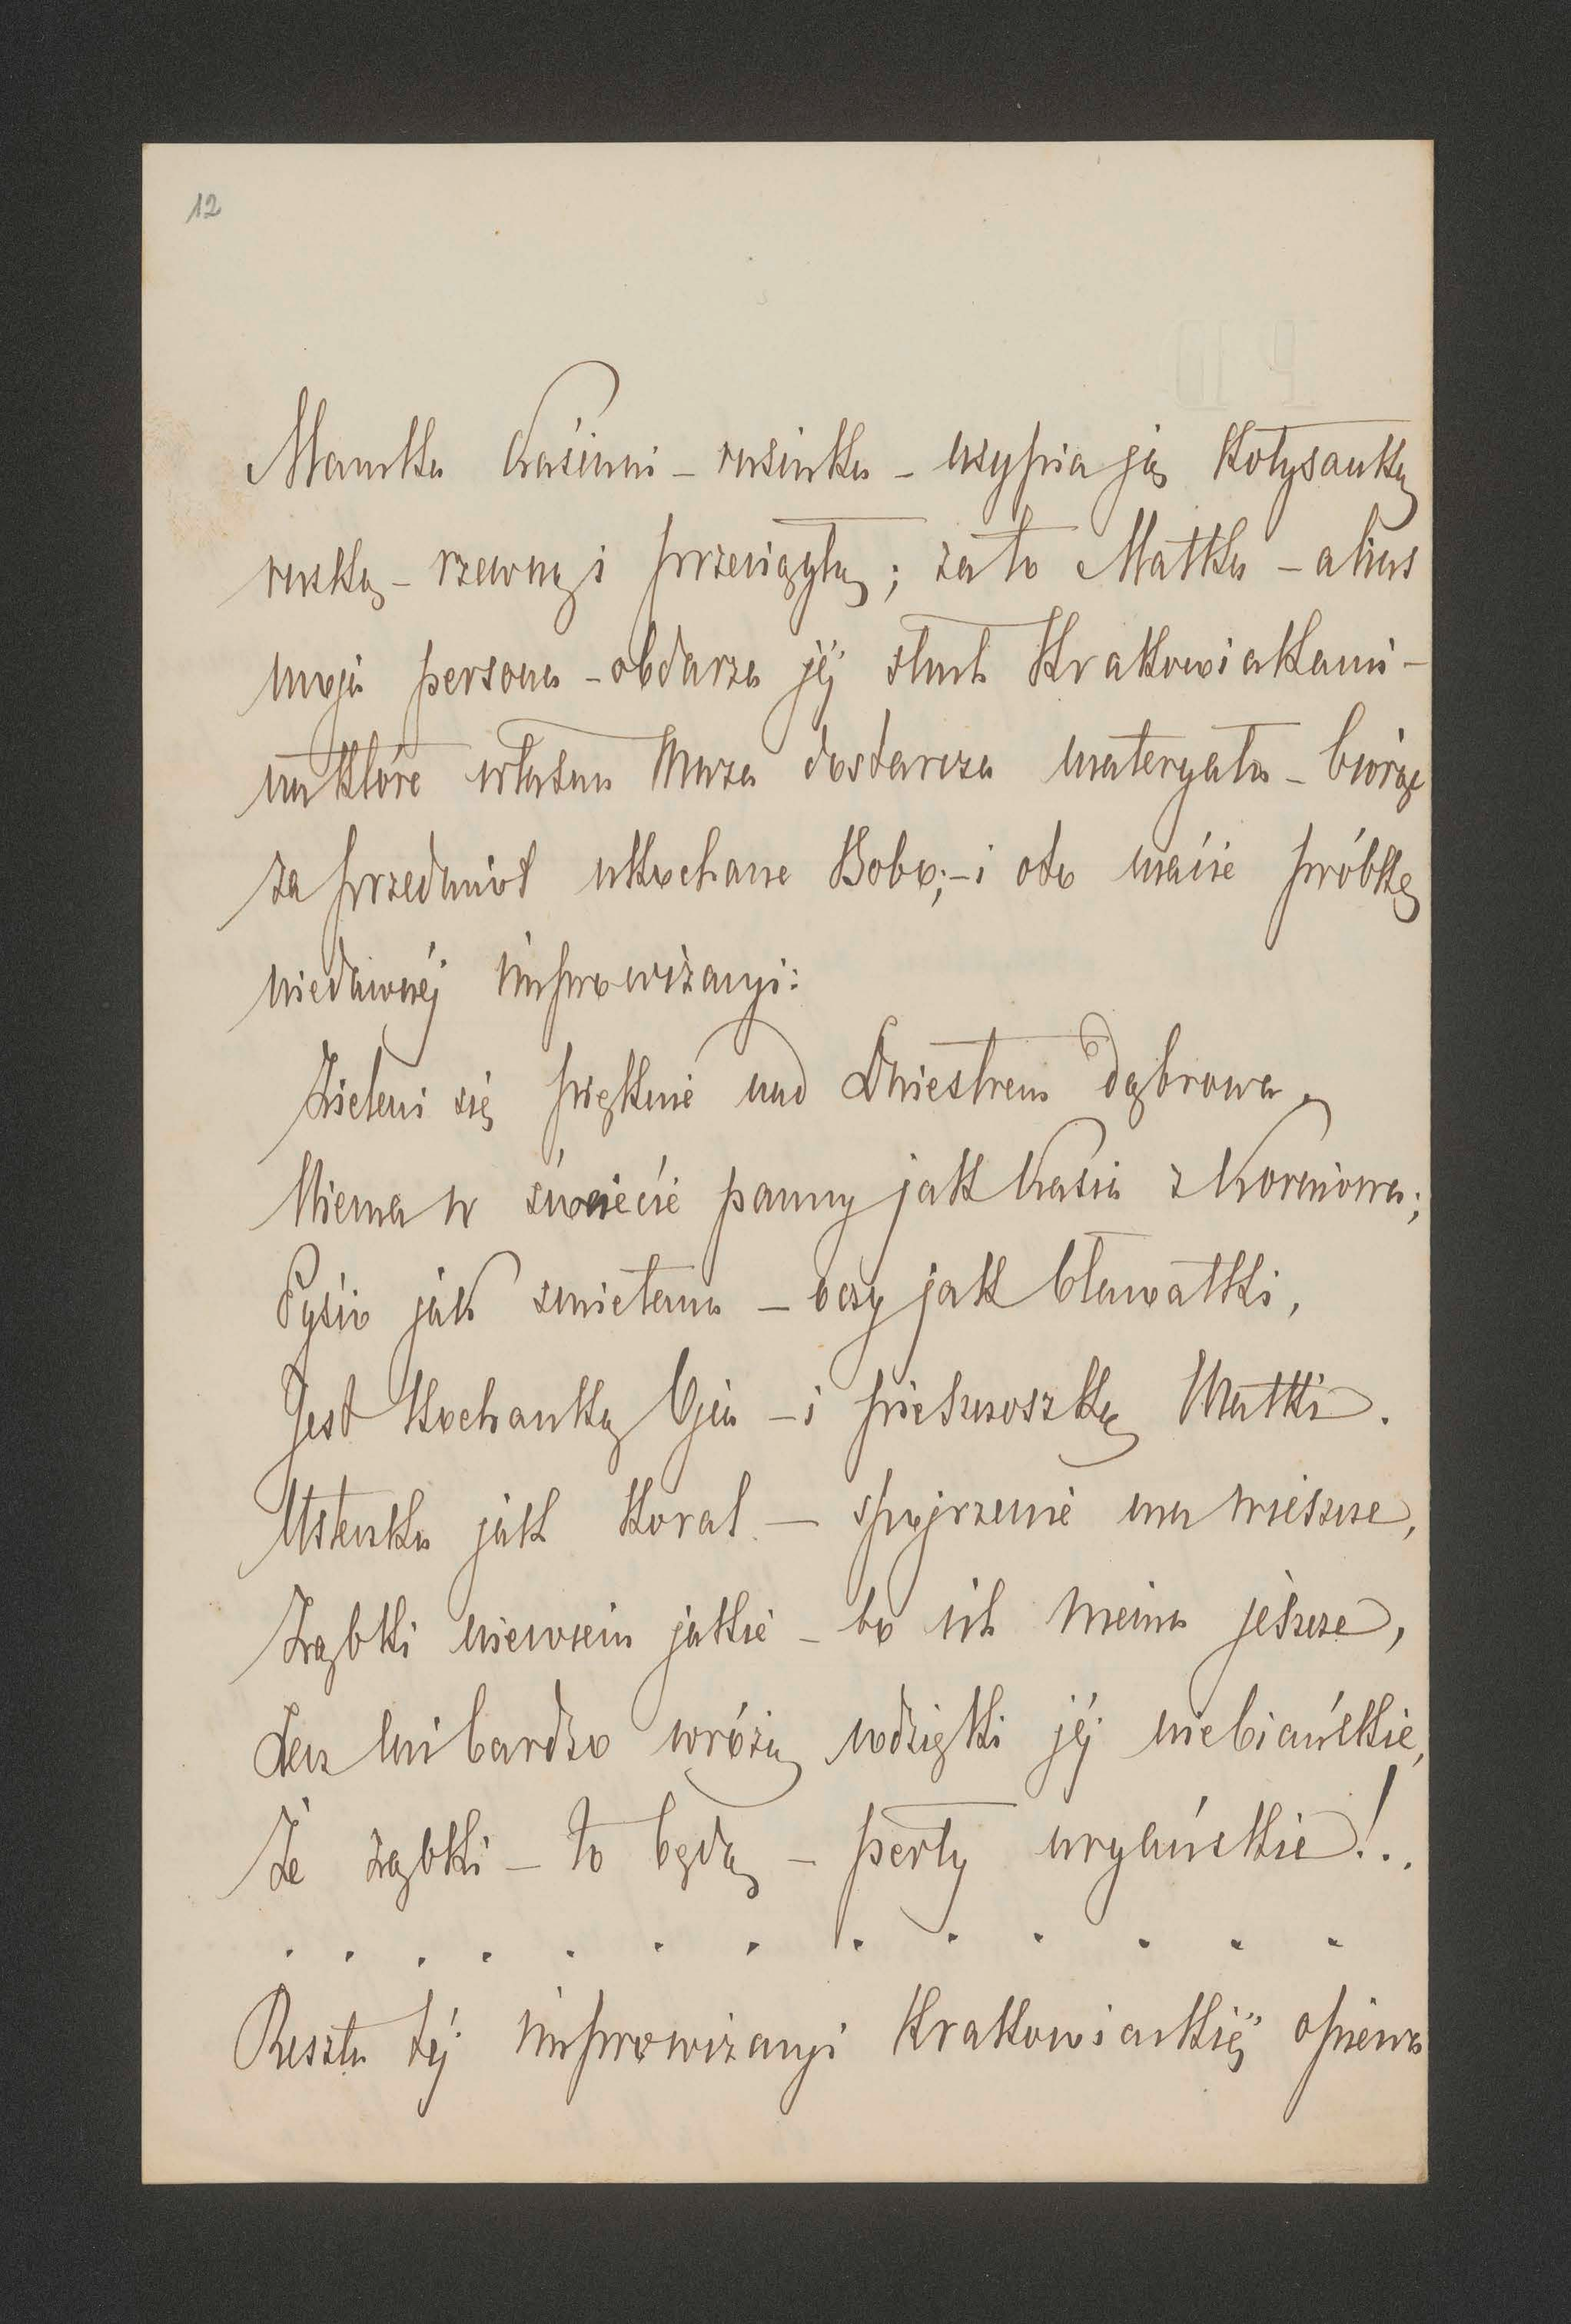 12
Mamka Kasiuni – rusinka – usypia ją kołysanką
ruską – rzewną i przeciągłą; za to Matka – alias
moja persona – obdarza jéj słuch krakowiakami –
na które własna Muza dostarcza materyału – biorąc
za przedmiot ukochane Bobo; – i oto macie próbkę
niedawnéj improwizacyi:
Zieleni się pięknie nad Dniestrem dąbrowa,
Niema w świecie panny jak Kasia z Korniowa;
Pysio jak śmietana – oczy jak bławatki,
Jest kochanką Ojca – i pieszczoszką Matki.
Usteczka jak koral – spojrzenie ma wieszcze,
Ząbki niewiem jakie – bo ich niema jeszcze,
Lecz mi bardzo wróżą wdzięki jéj niebiańskie,
Że ząbki – to będą – perły uryańskie!..
. . . . . . . . . . . . .
Reszta téj improwizacyi krakowiackiéj opiewa